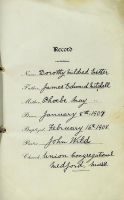 Record
Name Dorothy Mildred
Father James Edward Mitchell
Mother Phoebe May
Born January 8th 1907
Baptized February 16th 1908
Pastor John Wild
Church Union Congregational
Medford, Mass